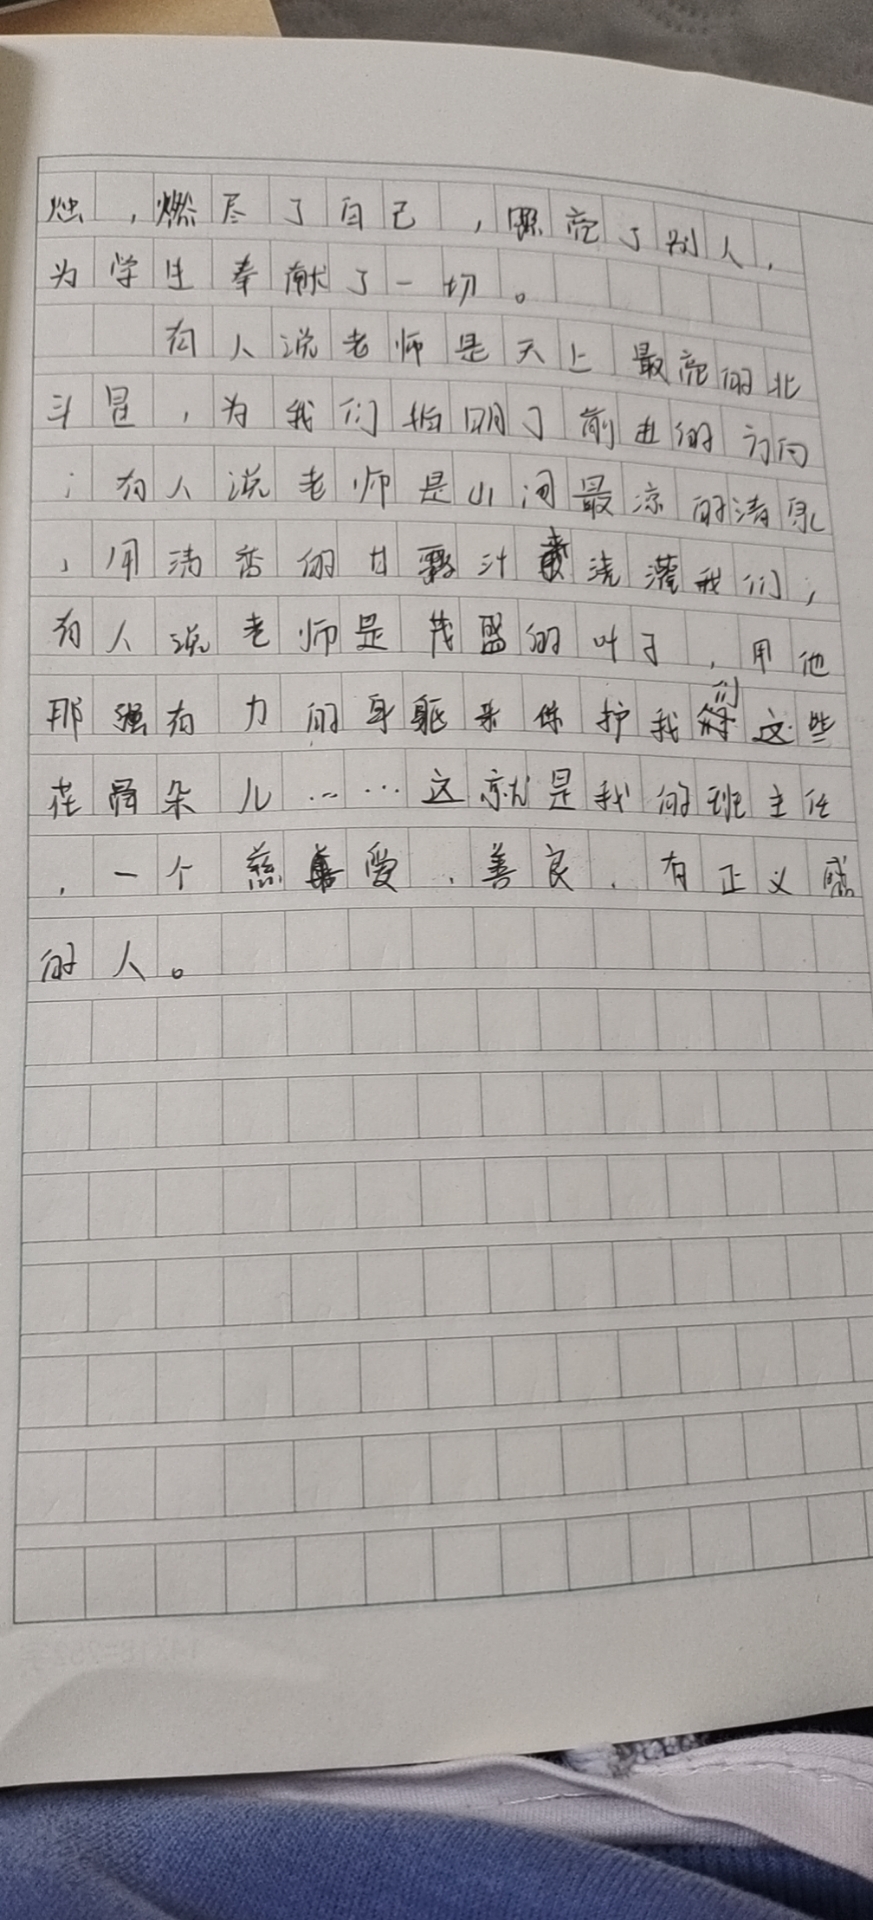 烛，燃尽了自己，照亮了别人，
为学生奉献了一切。
有人说老师是天上最亮的北
斗星，为我们指明了前进的方向
；有人说老师是山间最凉的清泉
，用清香的甘露汁来浇灌我们；
有人说老师是茂盛的叶子，用他
那强有力的身躯来保护我们这些
花骨朵儿……这就是我的班主任
，一个慈爱、善良、有正义感
的人。